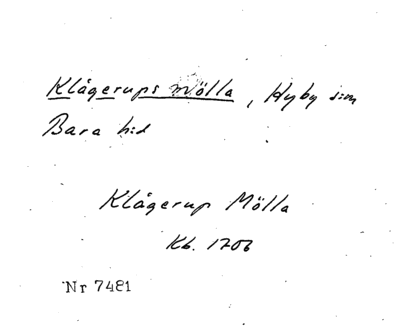 Klågerups mölla, Hyby sn
Bara hd
Klågerup Mölla
Kb. 1706
Nr 7481